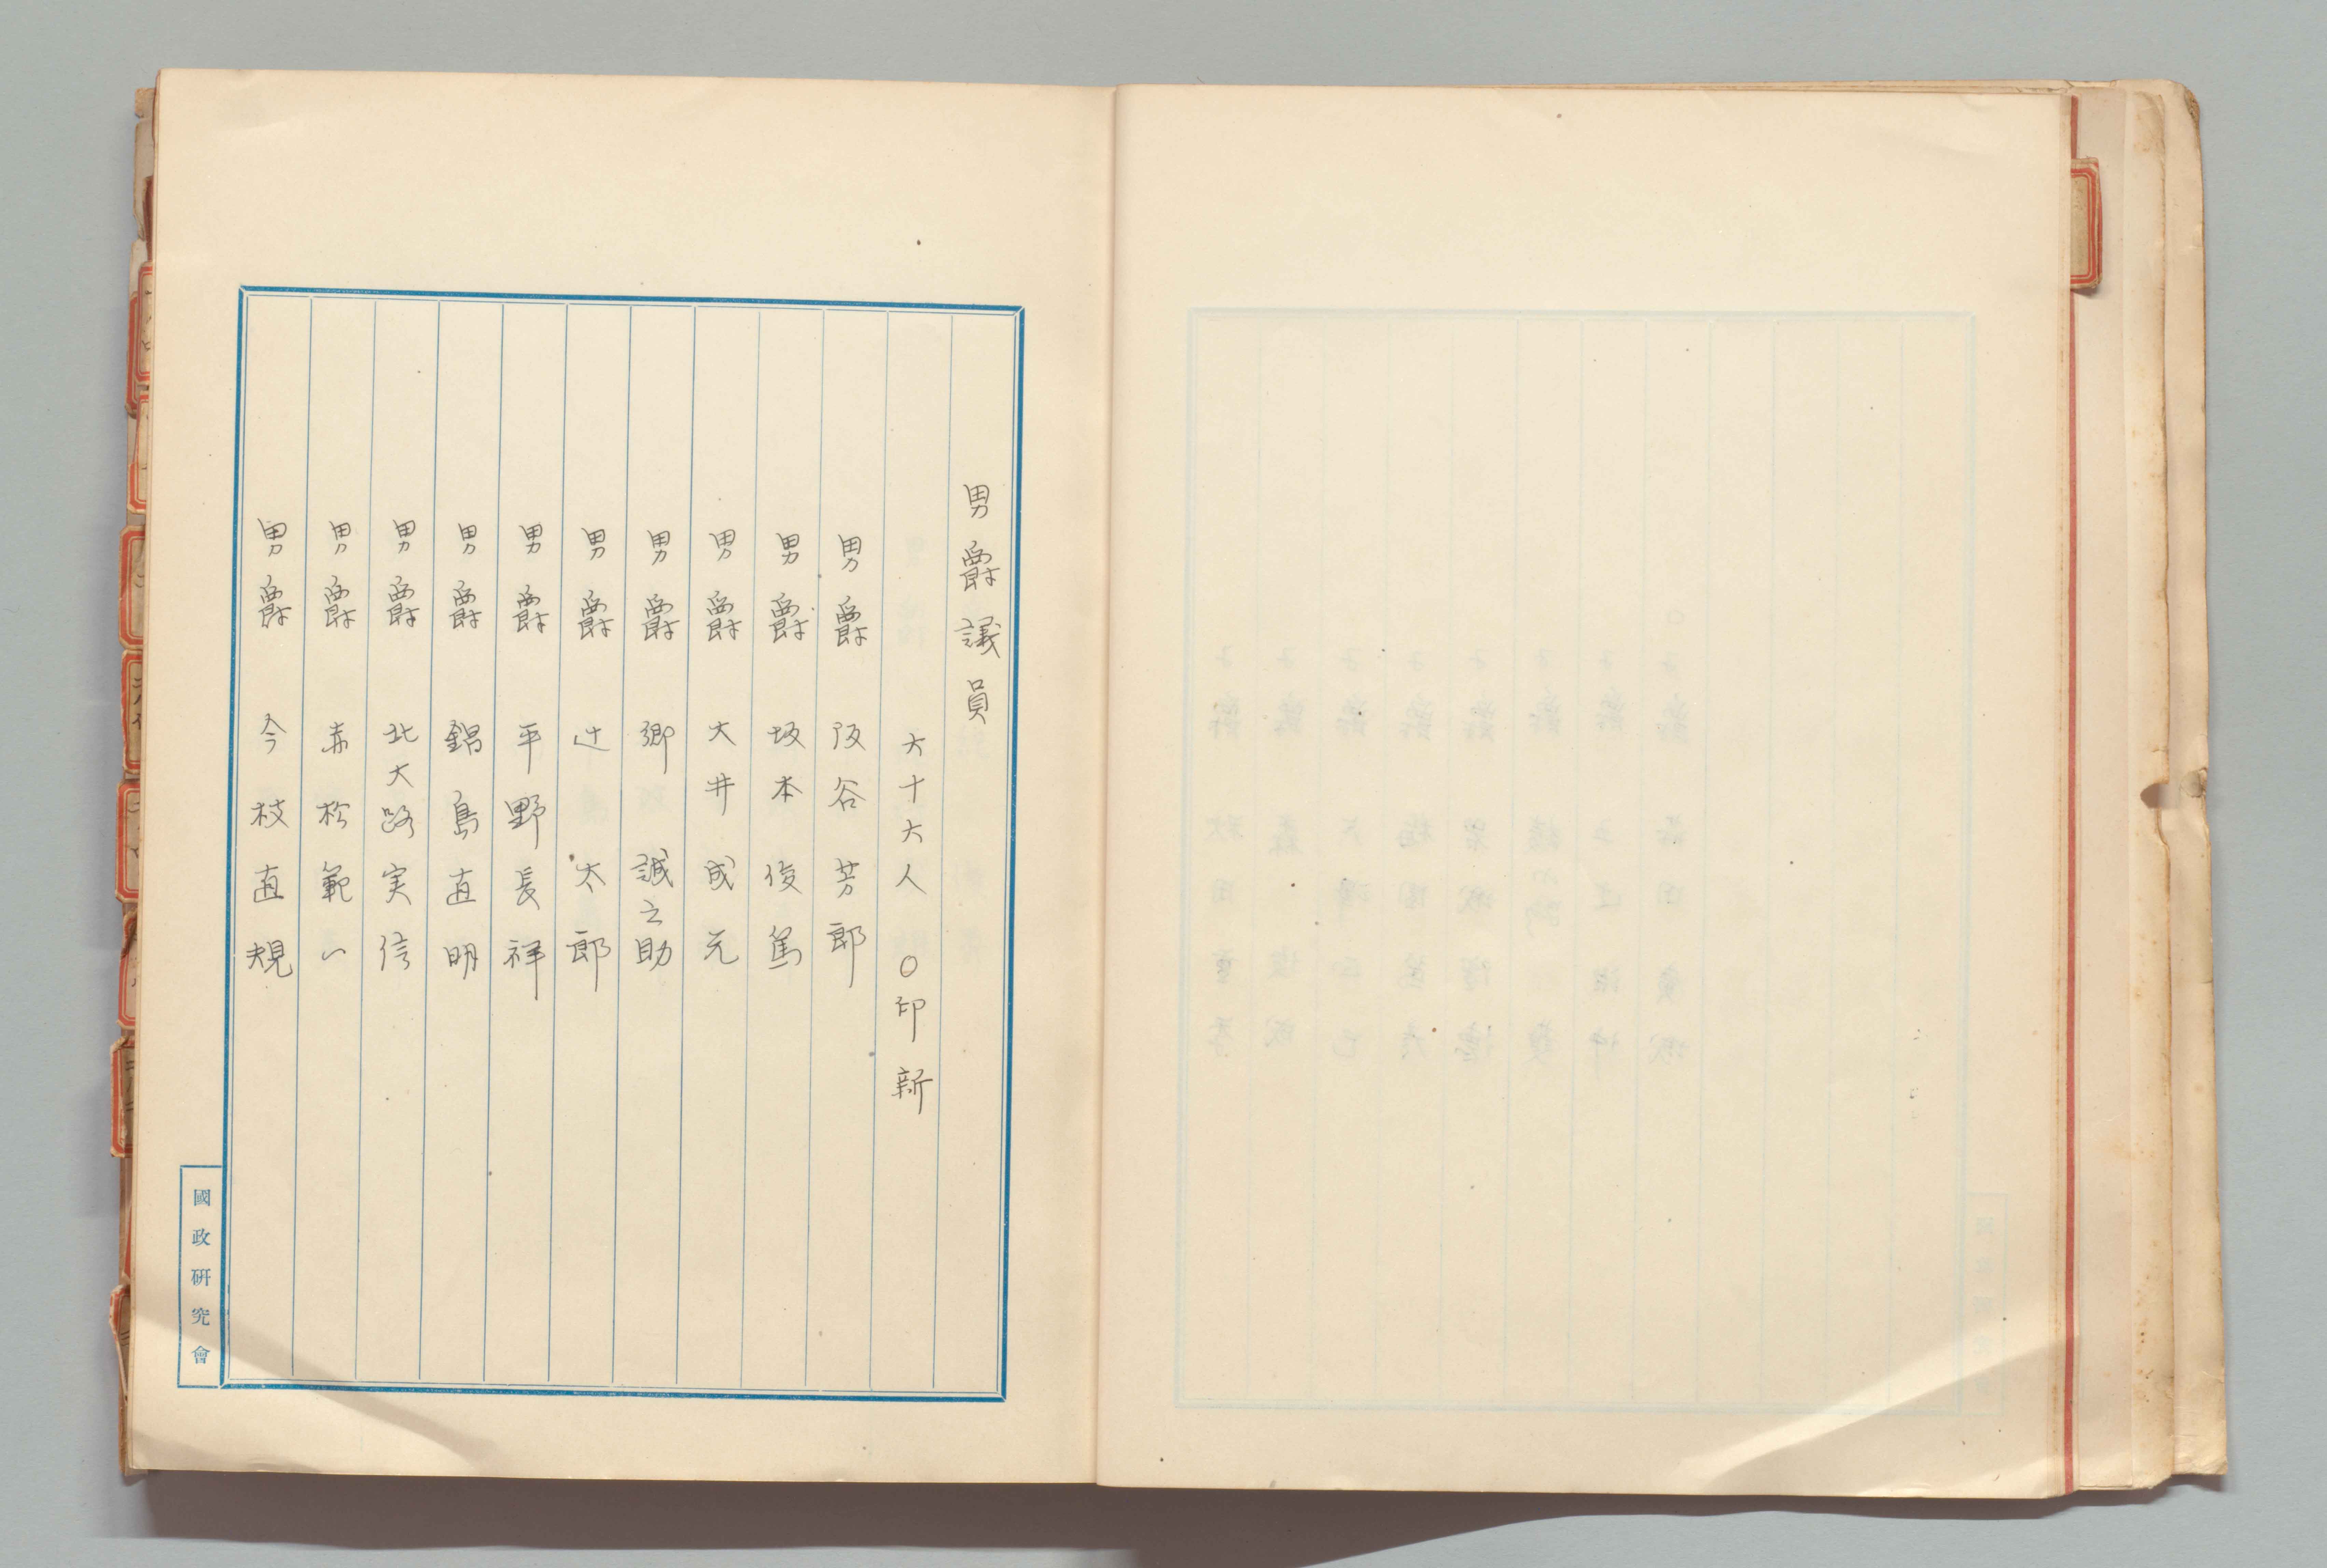 男爵議員
六十六人 〇印新
男爵 阪谷芳郎
男爵 坂本俊篤
男爵 大井成元
男爵 郷誠之助
男爵 辻太郎
男爵 平野長祥
男爵 鍋島直明
男爵 北大路実信
男爵 赤松範一
男爵 今枝直規
國政研究會